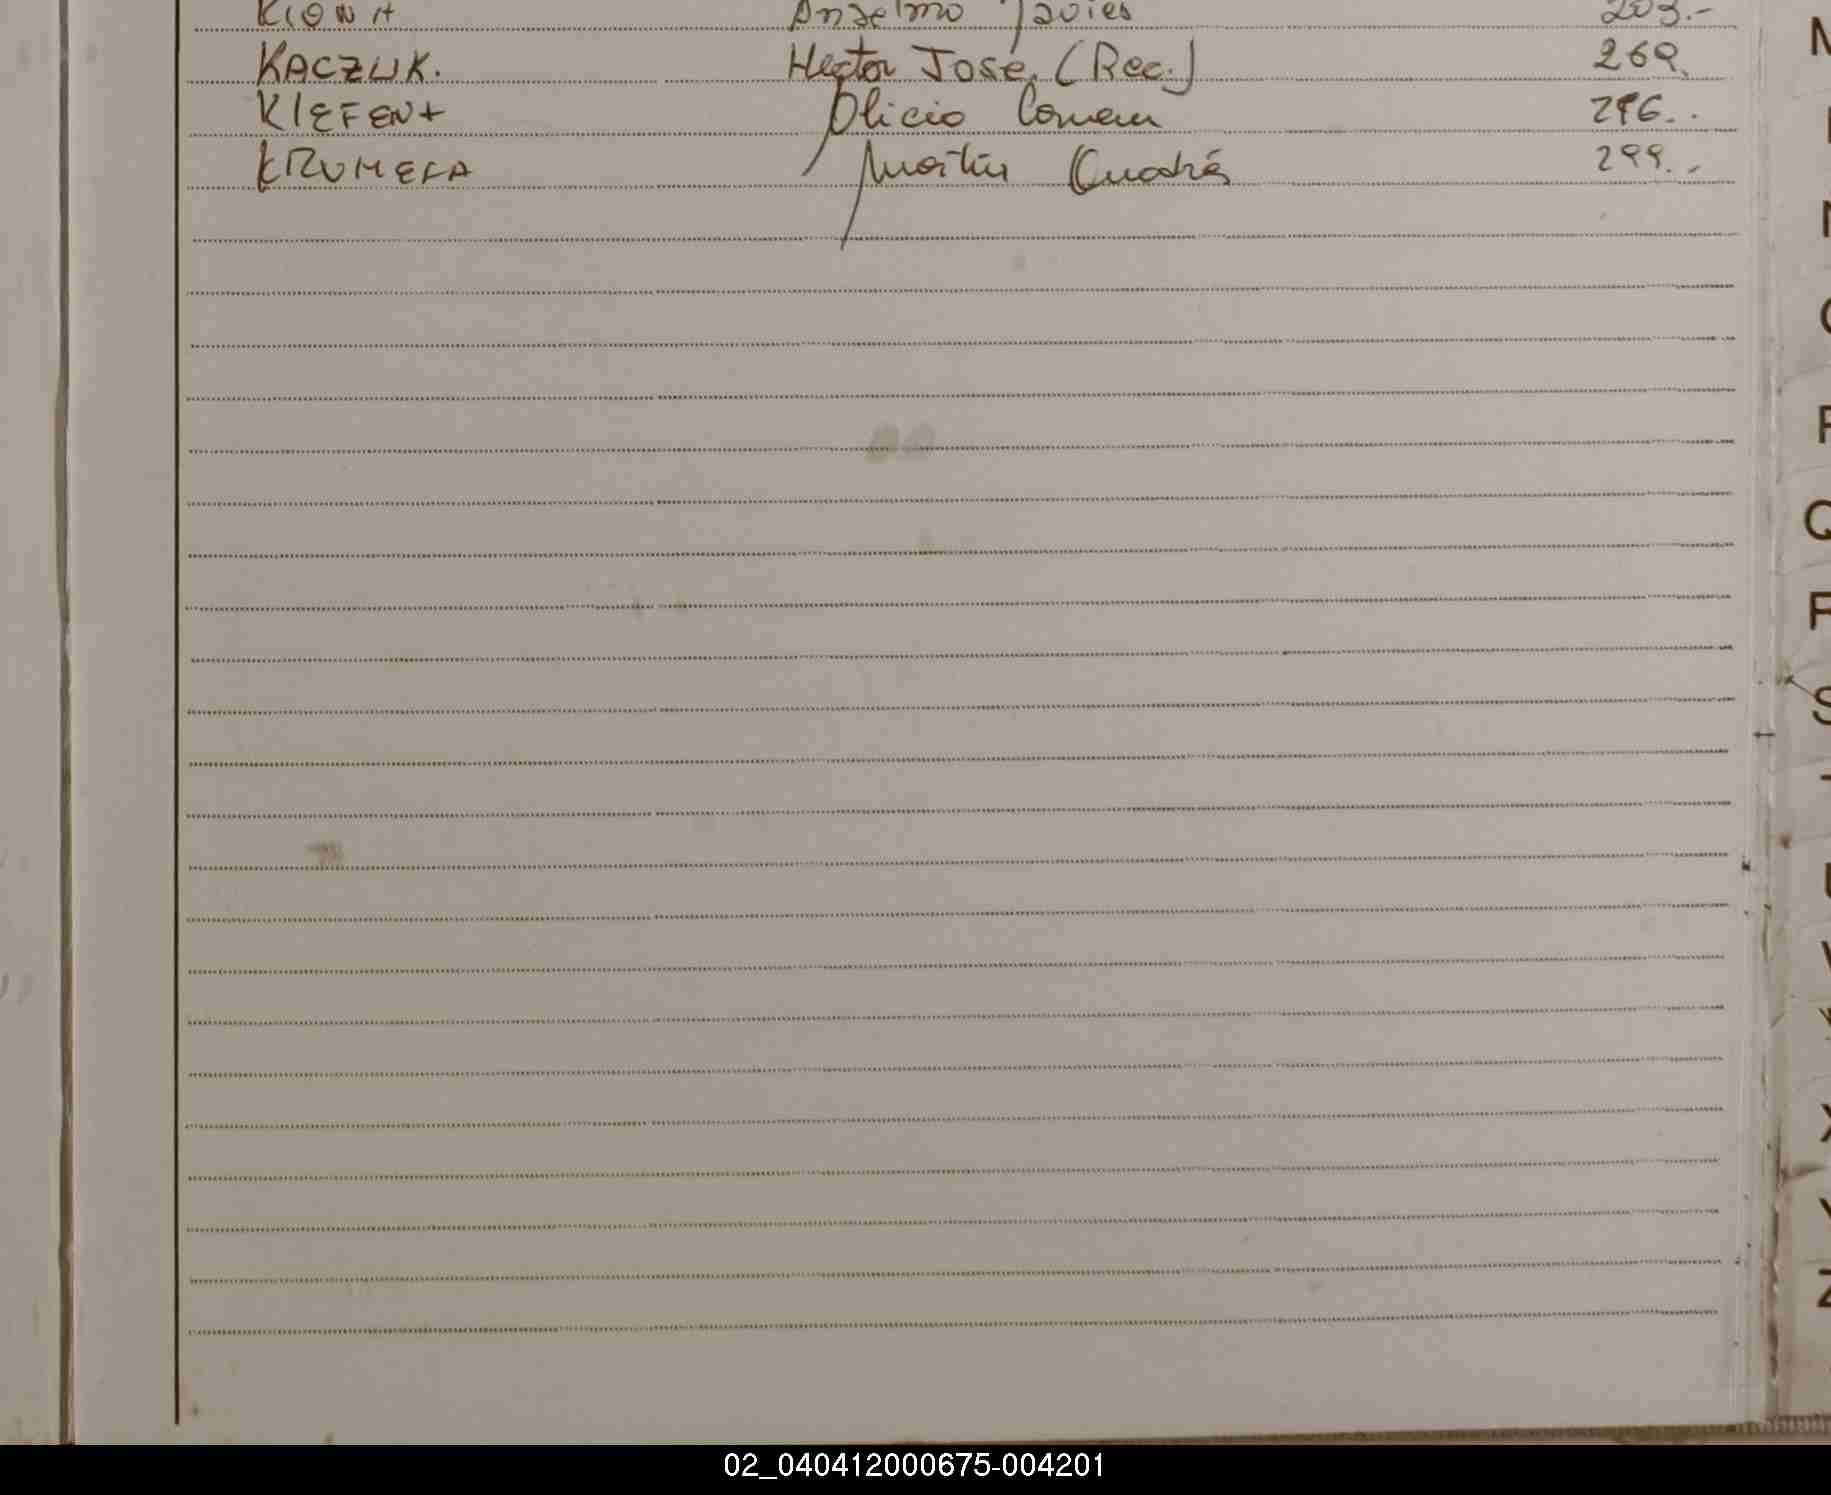 Anselmo Javier 203.-
KACZUK. Hector Jose (Rec.) 269.
KIEFEN+ 296..
KRUMEFA Martin Andrés 299..
M
N
O
P
Q
R
S
T
U
V
X
Y
Z
02_040412000675-004201